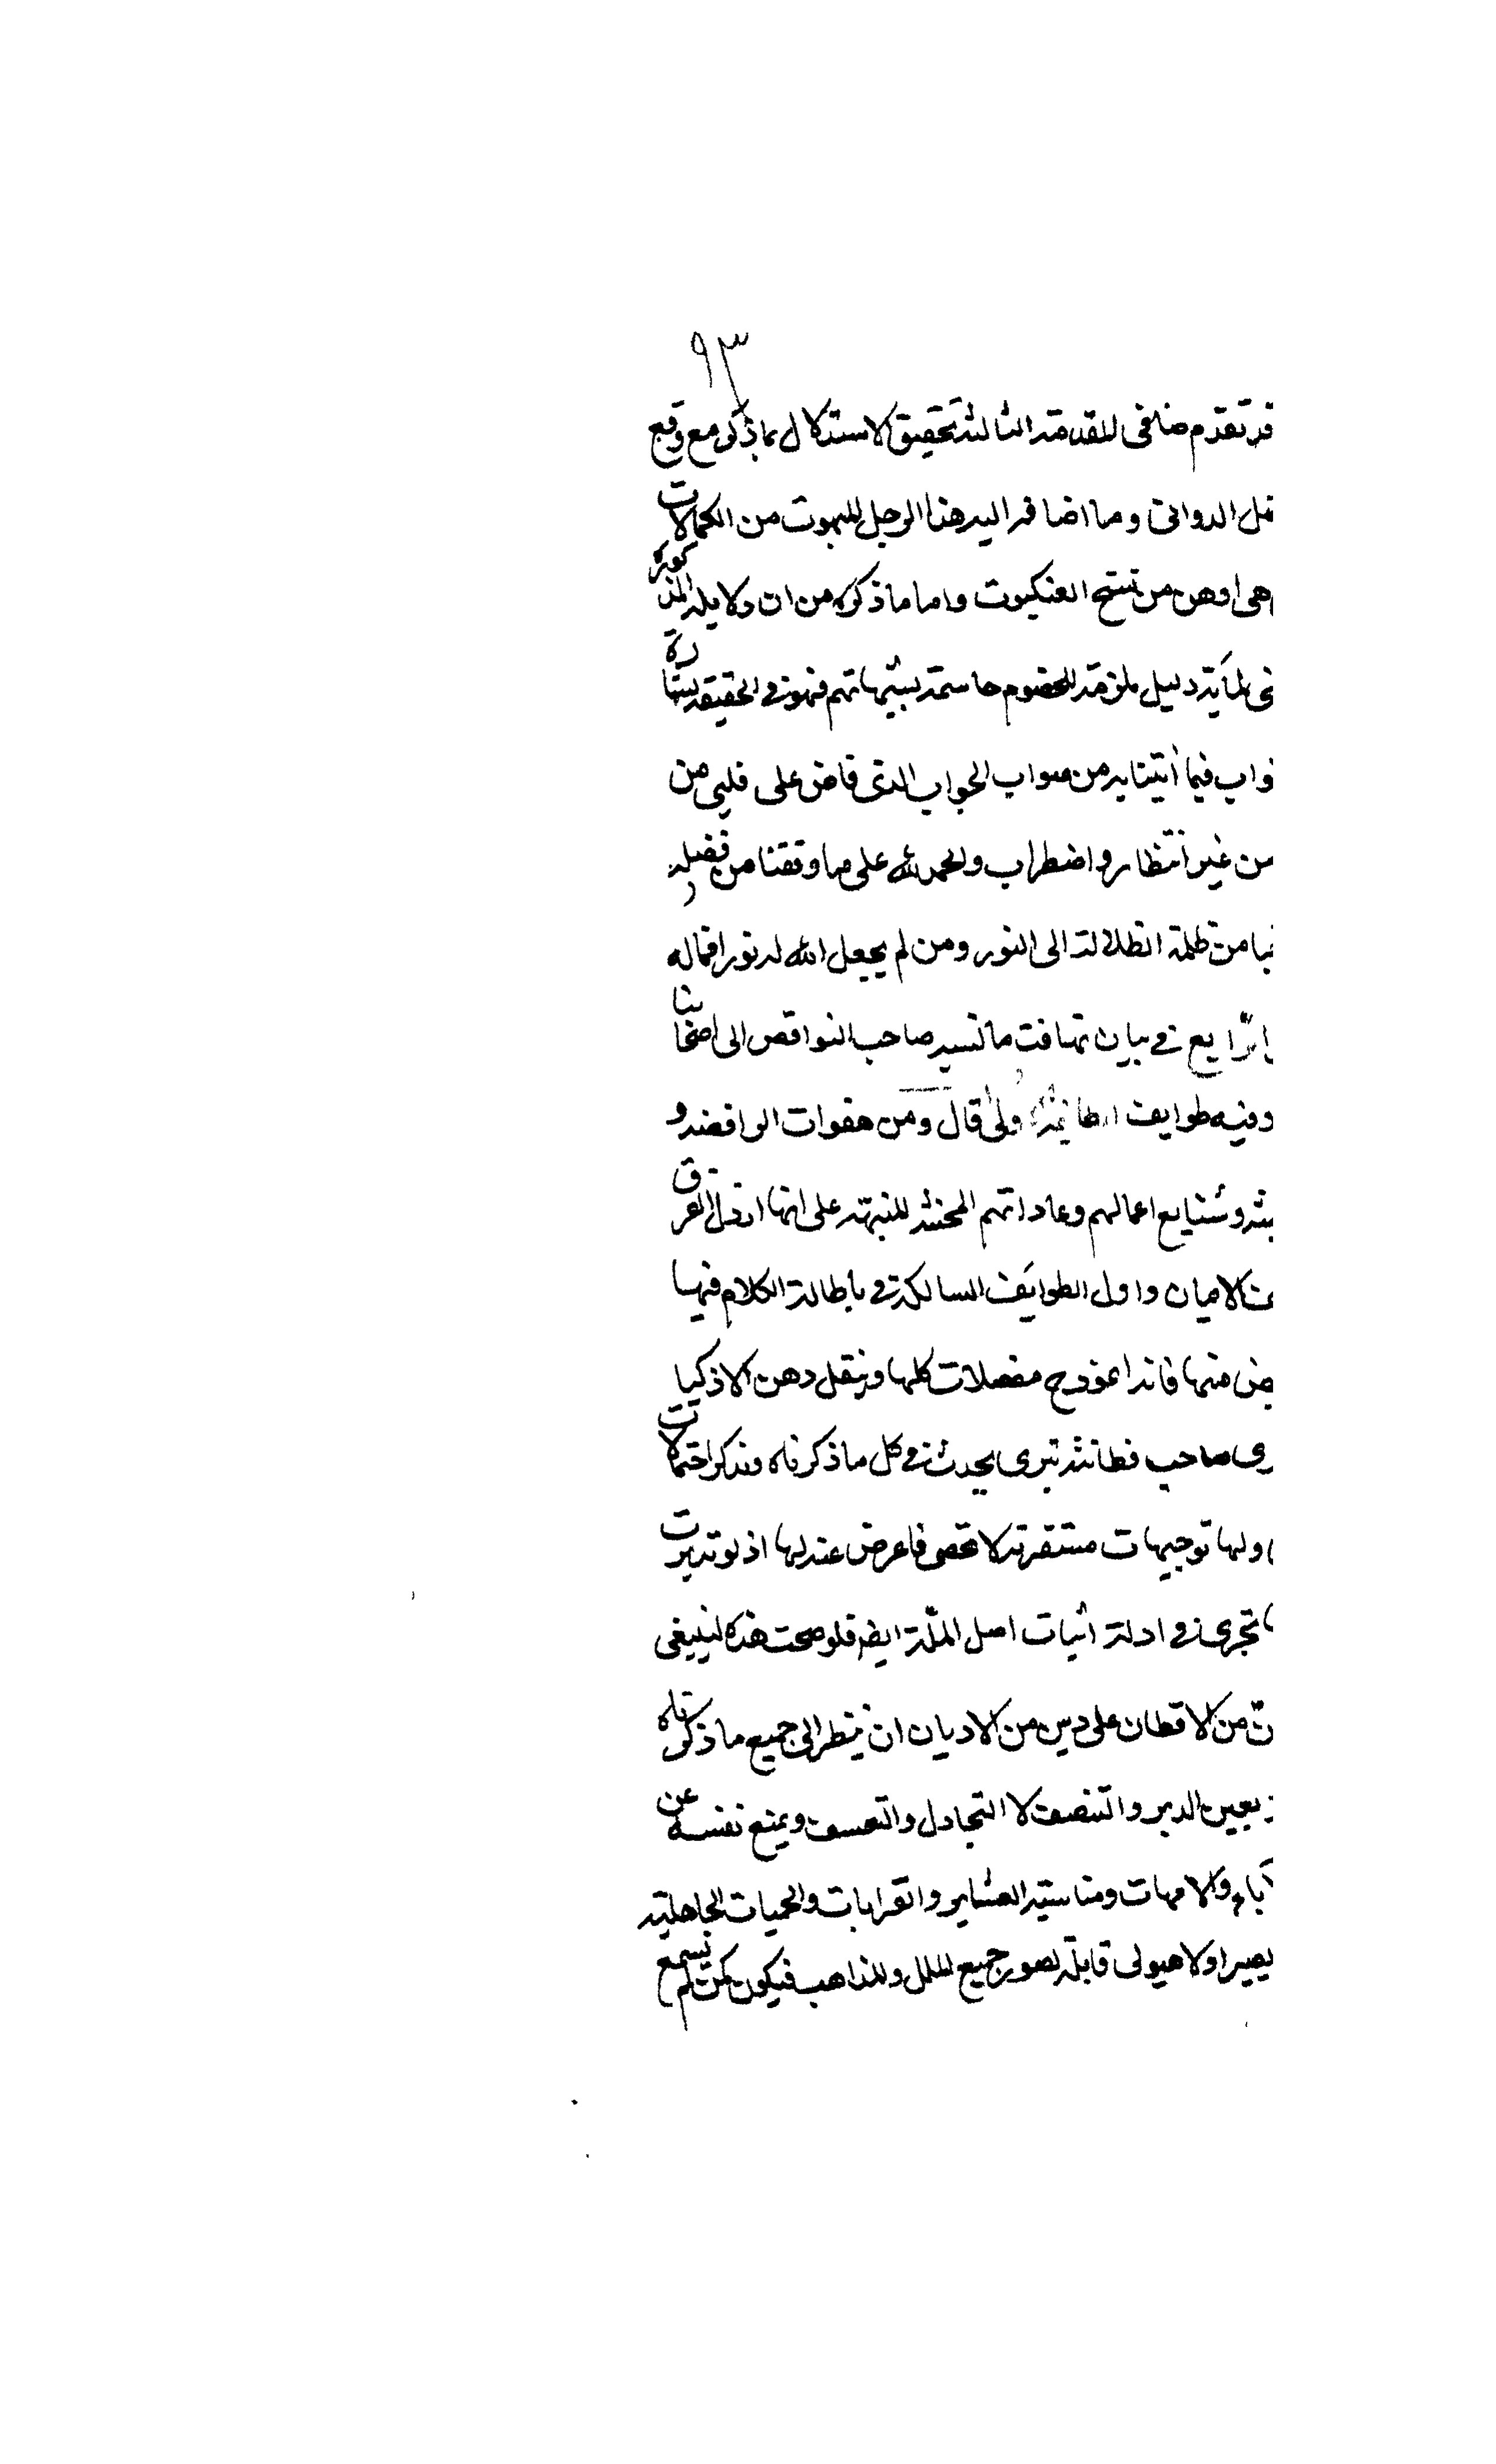 ٩٣
قد تقدم منا فى المقدمة الثالثة تحقيق الاستدلال بما ذكر مع وقع
الدوانى وما اضافه اليه هذا الرجل المبهوت من الكمالات
هى اوهن من نسج العنكبوت واما ما ذكره من ان دلايله المذكوره
دليل ملزمة للخصوم حاسمة بشبهاتهم فهو فى الحقيقة
فيما أتينا به من صواب الجواب الذى فاض على قلبى من
من غير انتظار واضطراب والحمد لله على ما وفقنا من فضله
من ظلمة الضلالة الى النور ومن لم يجعل الله له نورا فماله
الرّابع فى بيان تهافت ما نسبه صاحب النواقض الى اصحابنا
وفيه طوايف قال ومن هفوات الرافضة و
وشنايع اعمالهم وعاداتهم المنبهة على انها ارذل الفرق
الاديان واول الطوايف السالكة فى باطالة الكلام فيها
منها فانه انموذج مفصلات كلها وينقل ذهن الاذكيا
صاحب فطانة تبرى يحدث فى كل ما ذكرناه ونذكر احتمالات
ولها توجيهات متفرقة لا تحصى فاعرض عند لها اذ لو تدبرت
تجرى فى ادلة اثبات اصل الملّة ايضا فلو صحت هذه لينبغى
من الاقطان على دين من الاديان ان ينظر الى جميع ما ذكرناه
بعين الدبر والتنصف لا التجادل والتعسف ويمنع نفسه عن
آباء والامهات ومناسبة العشاير والقرابات والحميات الجاهلية
يصير اولا هيولى قابلة لصور جميع الملل والمذاهب فيكون كمن لم يسمع